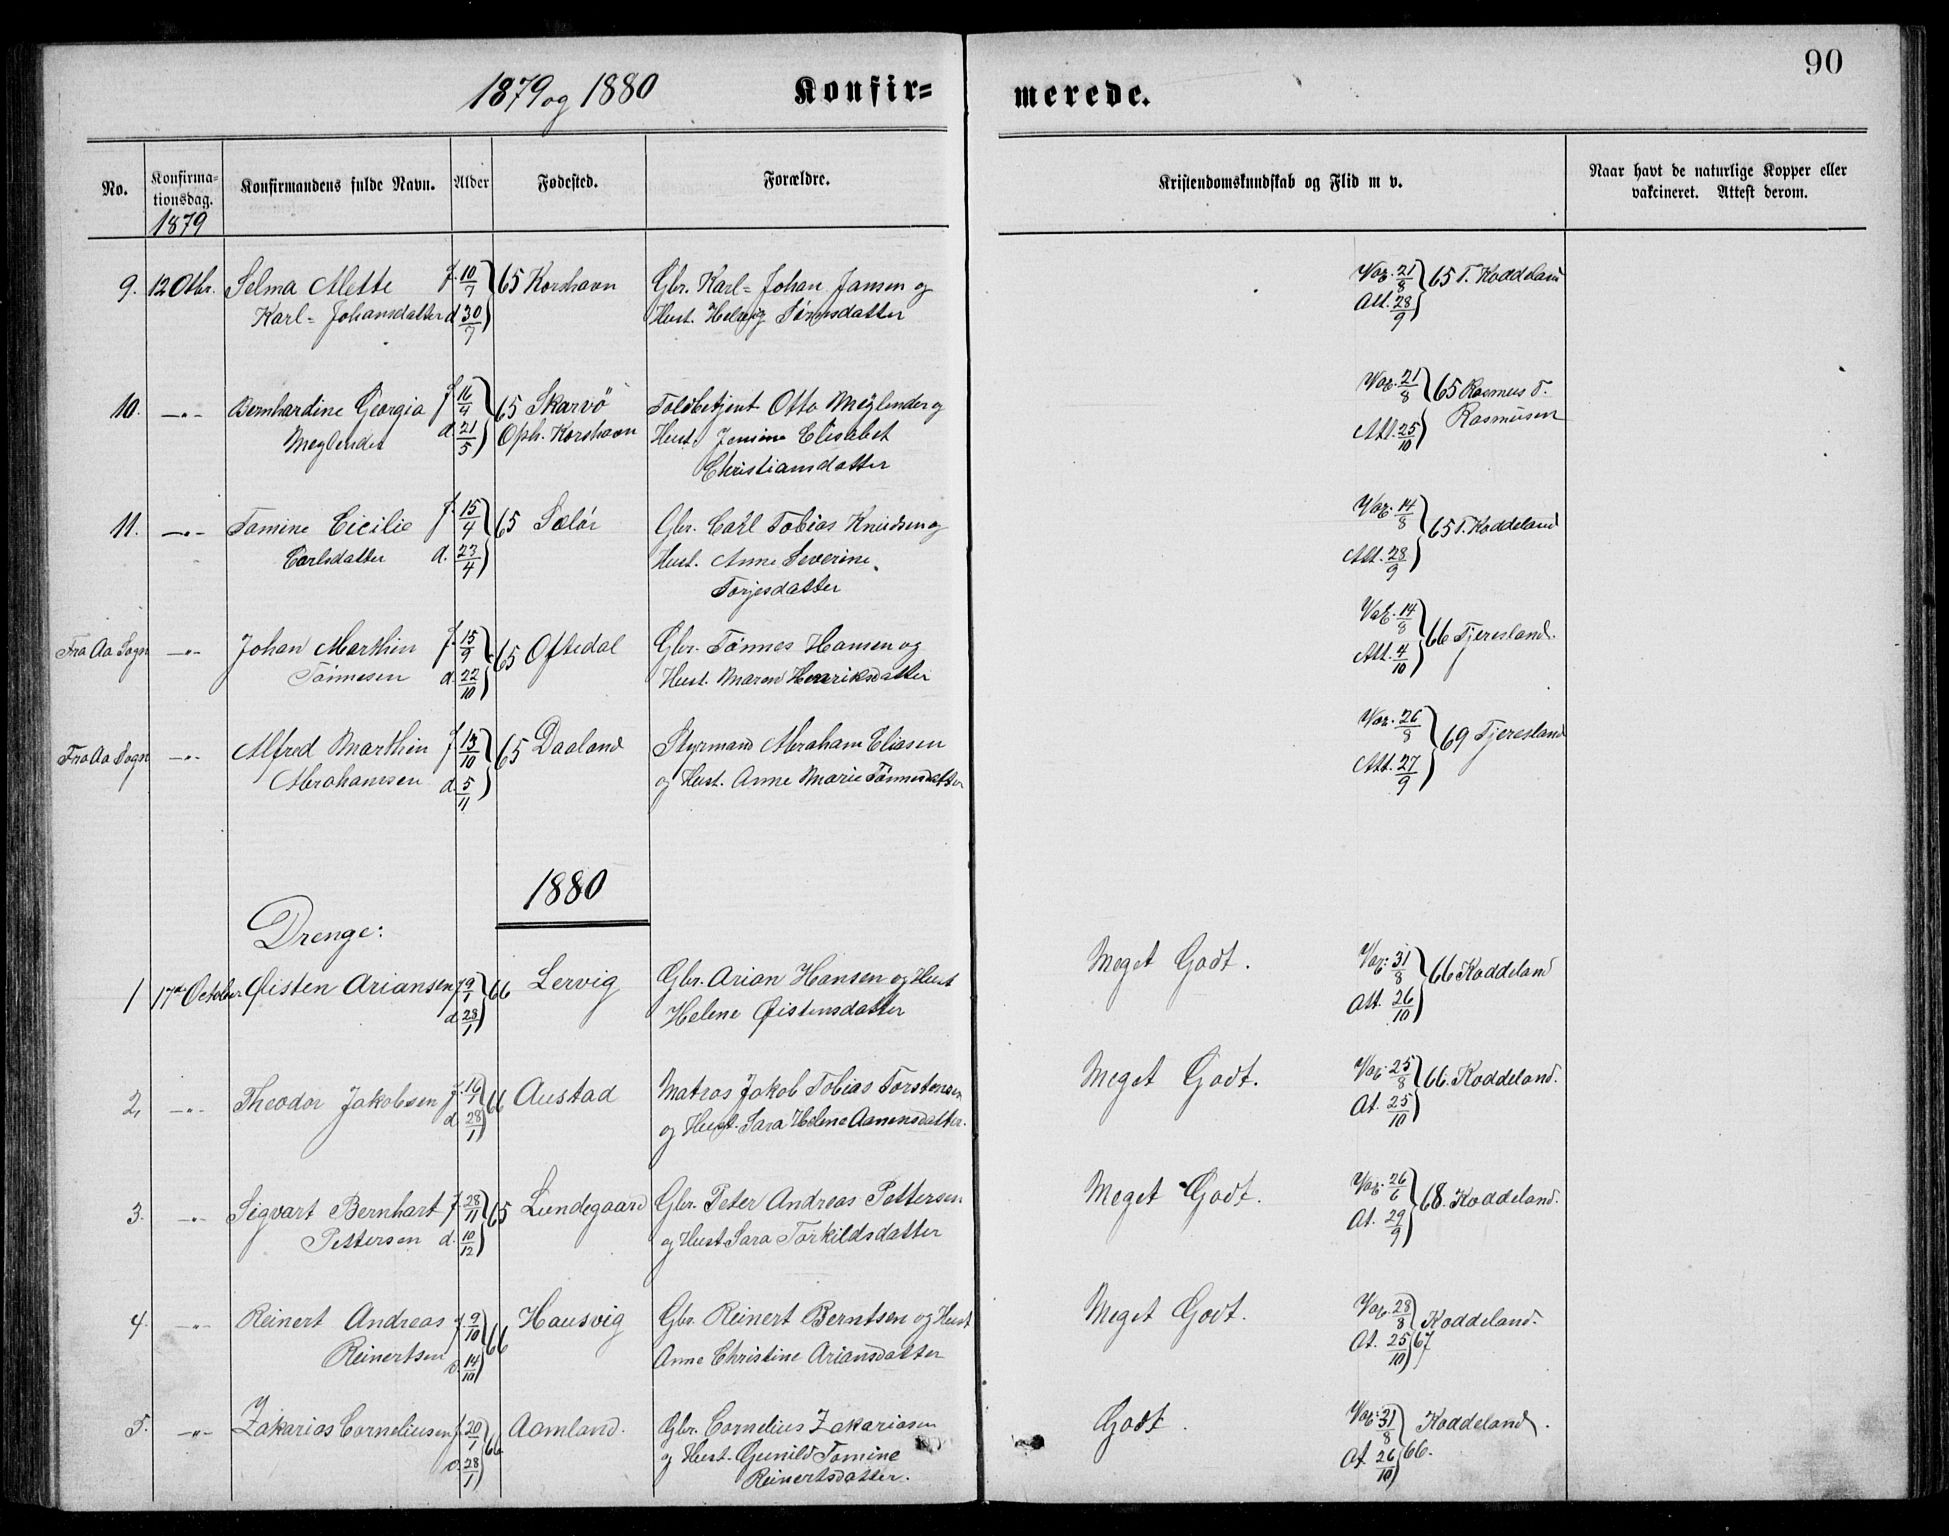 90
1879 og 1880 Konfir= merede.
No. Konfirma-tionsdag. Konfirmandens fulde Navn. Alder Fødested. Forældre. Kristendomskundskab og Flid m v. Naar havt de naturlige Kopper eller vakcineret. Attest derom.
1879
9. 12 Otbr. Selma Alette f. 10/7 65 Korshavn Gbr. Karl= Johan Jansen og Vac. 21/8 65 T. Koddeland
Karl= Johansdatter d 30/7 Hust. Helvig Tønnsdatter Att. 28/9
10. —"— Bernhardine Georgia f 16/4 65 Skarvö Toldbetjent Otto Meglender og Vac. 21/8 65 Rasmus T.
Meglender d 21/5 Oph. Korshavn Hust. Jensine Elisabet Att. 25/10 Rasmusen
Christiansdatter
11. —"— Tomine Cicilie f. 15/4 65 Sælør Gbr. Carl Tobias Knudsen og Vac. 14/8 65 T. Koddeland
Carlsdatter d. 23/4 Hust. Anne Severine Att. 28/9
Torjesdatter
Fra Aa Sogn —"— Johan Marthin f. 15/9 65 Oftedal Gbr. Tönnes Hansen og Vak. 14/8 66 Tjeresland.
Tönnesen d. 22/10 Hust. Maren Henriksdatter Att. 4/10
Fra Aa Sogn —"— Alfred Marthin f 13/10 65 Daaland Styrmand Abraham Eliasen Vac. 26/8 69 Tjeresland
Abrahamsen d. 5/11 og Hust. Anne Marie Tönnesdatter Att. 27/9
1880
Drenge:
1 17de October Øisten Ariansen f 19/1 66 Lervig Gbr. Arian Hansen og Hust Meget Godt. Vac. 31/8 66 Koddeland
d. 28/1 Helene Øistensdatter Att. 26/10
2, —"— Theodor Jakobsen f. 16/1 66 Austad Matros Jakob Tobias Torstensen Meget Godt. Vac. 25/8 66. Koddeland.
d 28/1 og Hust. Sara Helene Aanensdatter. At. 25/10
3. —"— Sigvart Bernhart f. 28/11 65 Lundegaard Gbr. Peter Andreas Pettersen Meget Godt. Vac. 26/6 68. Koddeland.
Pettersen d. 10/12 og Hust Sara Torkildsdatter At. 29/9
4. —"— Reinert Andreas f. 9/10 66 Hausvig Gbr. Reinert Berntsen og Hust Meget Godt. Vac. 28/8 Koddeland.
Reinertsen d. 14/10 Anne Christine Ariansdatter At. 25/10 67
5. —"— Zakarias Corneliusen f. 20/1 66 Aamland. Gbr. Cornelius Zakariasen Godt. Vac. 31/8 Koddeland.
d. 28/1 og Hust. Gunild Tomine At. 26/10 66.
Reinertsdatter.